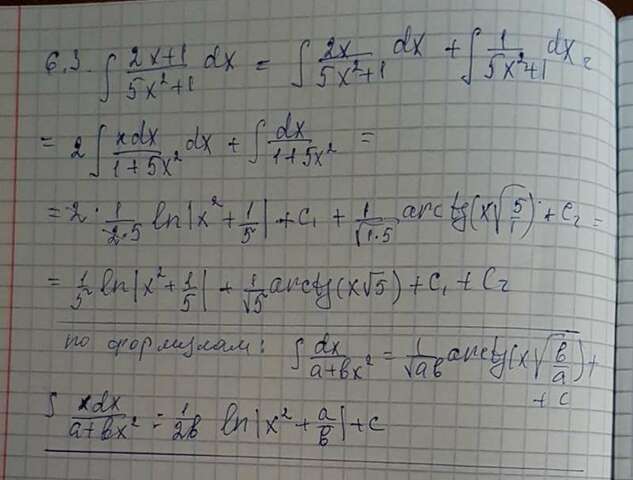 6.3. ∫ (2x+1)/(5x²+1) dx = ∫ 2x/(5x²+1) dx + ∫ 1/(5x²+1) dx =
= 2 ∫ xdx/(1+5x²) dx + ∫ dx/(1+5x²) =
= 2 · 1/(2·5) ln|x² + 1/5| + C₁ + 1/√(1·5) arctg(x√(5/1)) + C₂ =
= 1/5 ln|x² + 1/5| + 1/√5 arctg(x√5) + C₁ + C₂
по формулам: ∫ dx/(a+bx²) = 1/√(ab) arctg(x√(b/a)) +
+ C
∫ xdx/(a+bx²) = 1/(2b) ln|x² + a/b| + C